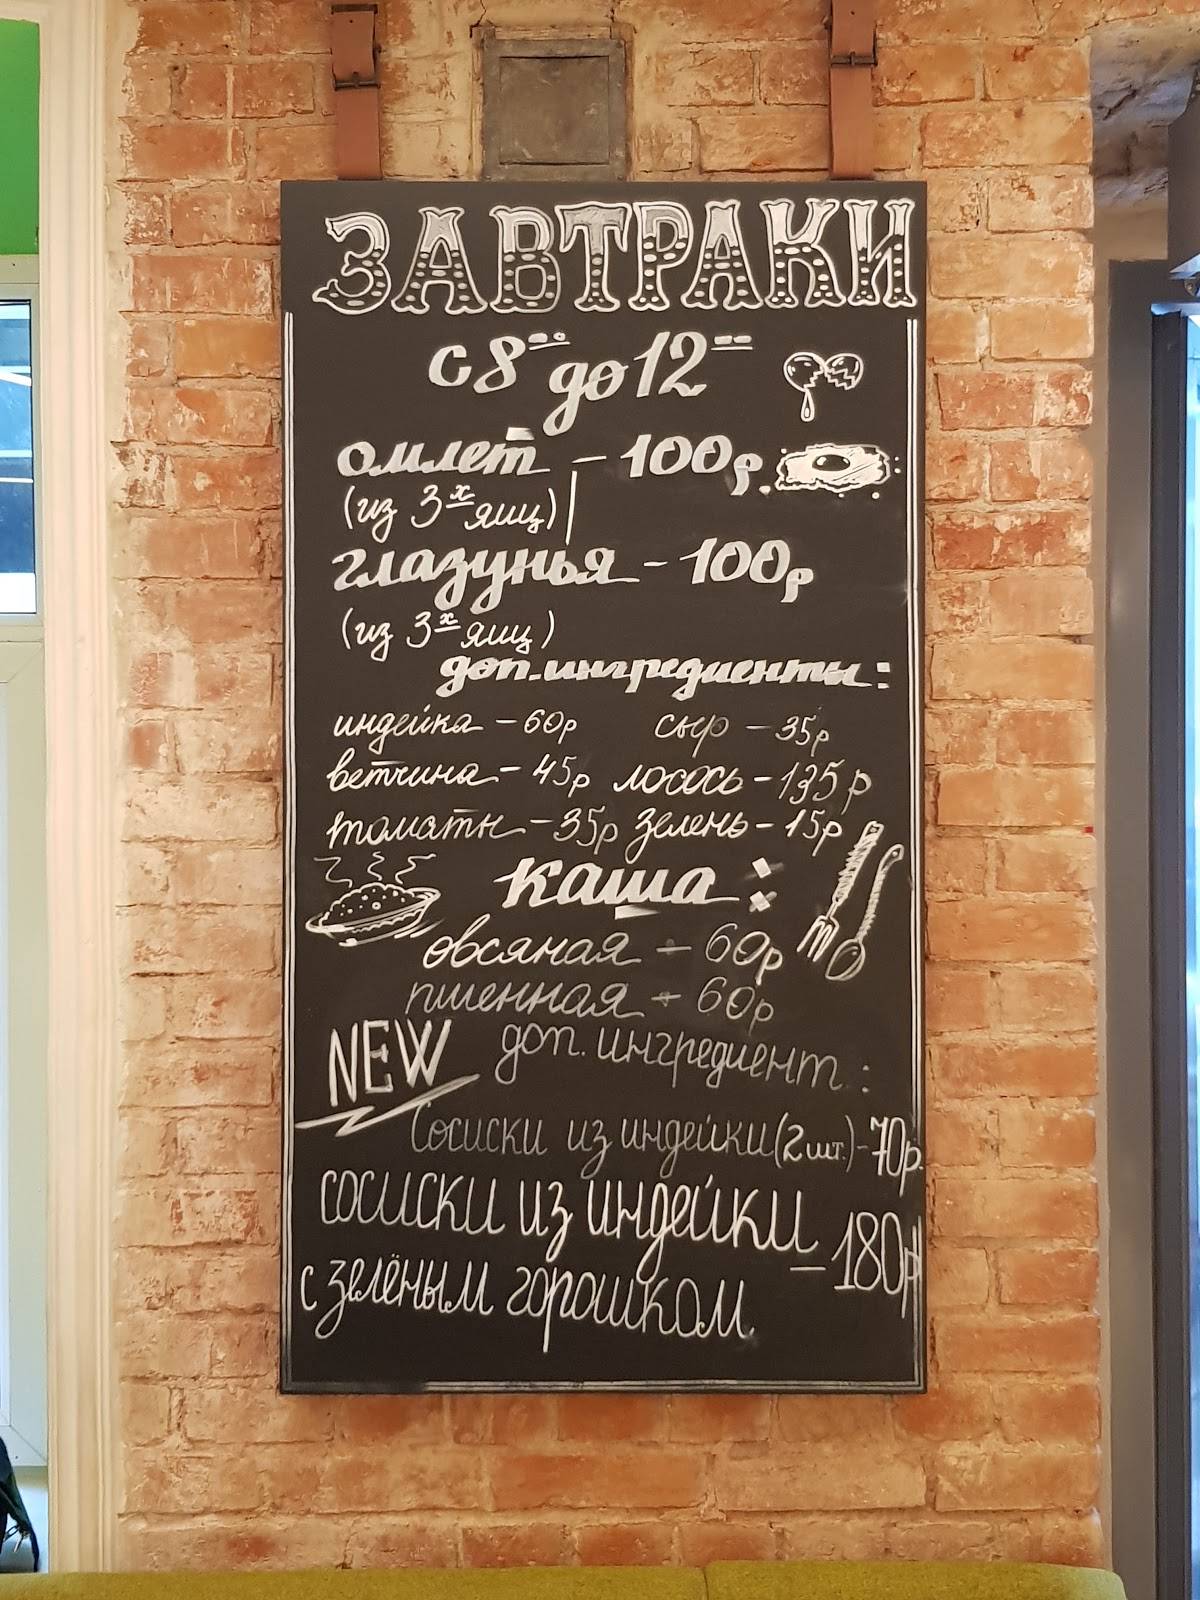 ЗАВТРАКИ
с 8⁰⁰ до 12⁰⁰
омлет – 100р.
(из 3х яиц)
глазунья – 100р
(из 3х яиц)
доп. ингредиенты:
индейка – 60р сыр – 35р
ветчина – 45р лосось – 135р
томаты – 35р зелень – 15р
каша:
овсяная – 60р
пшенная – 60р
NEW доп. ингредиент:
Сосиски из индейки (2 шт.) – 70р.
сосиски из индейки – 180р
с зелёным горошком.